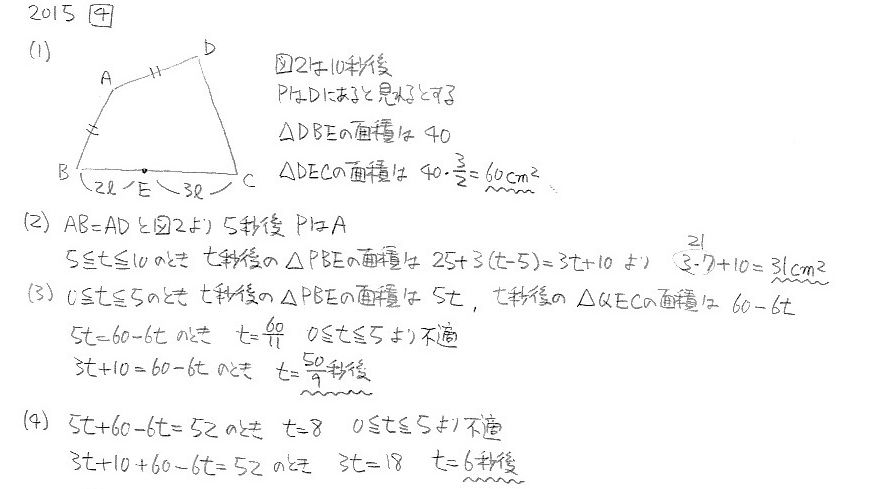 2015 4
(1)
D
A
B
2l E 3l C
図2は10秒後
PはDにあると見れるとする
△DBEの面積は 40
△DECの面積は 40・3/2=60cm²
(2) AB=ADと図2より 5秒後 PはA
5≦t≦10のとき t秒後の△PBEの面積は 25+3(t-5)=3t+10 より 3・7+10=31cm²
21
(3) 0≦t≦5のとき t秒後の△PBEの面積は 5t, t秒後の △QECの面積は 60-6t
5t=60-6tのとき t=60/11 0≦t≦5より不適
3t+10=60-6tのとき t=50/9秒後
(4) 5t+60-6t=52のとき t=8 0≦t≦5より不適
3t+10+60-6t=52のとき 3t=18 t=6秒後